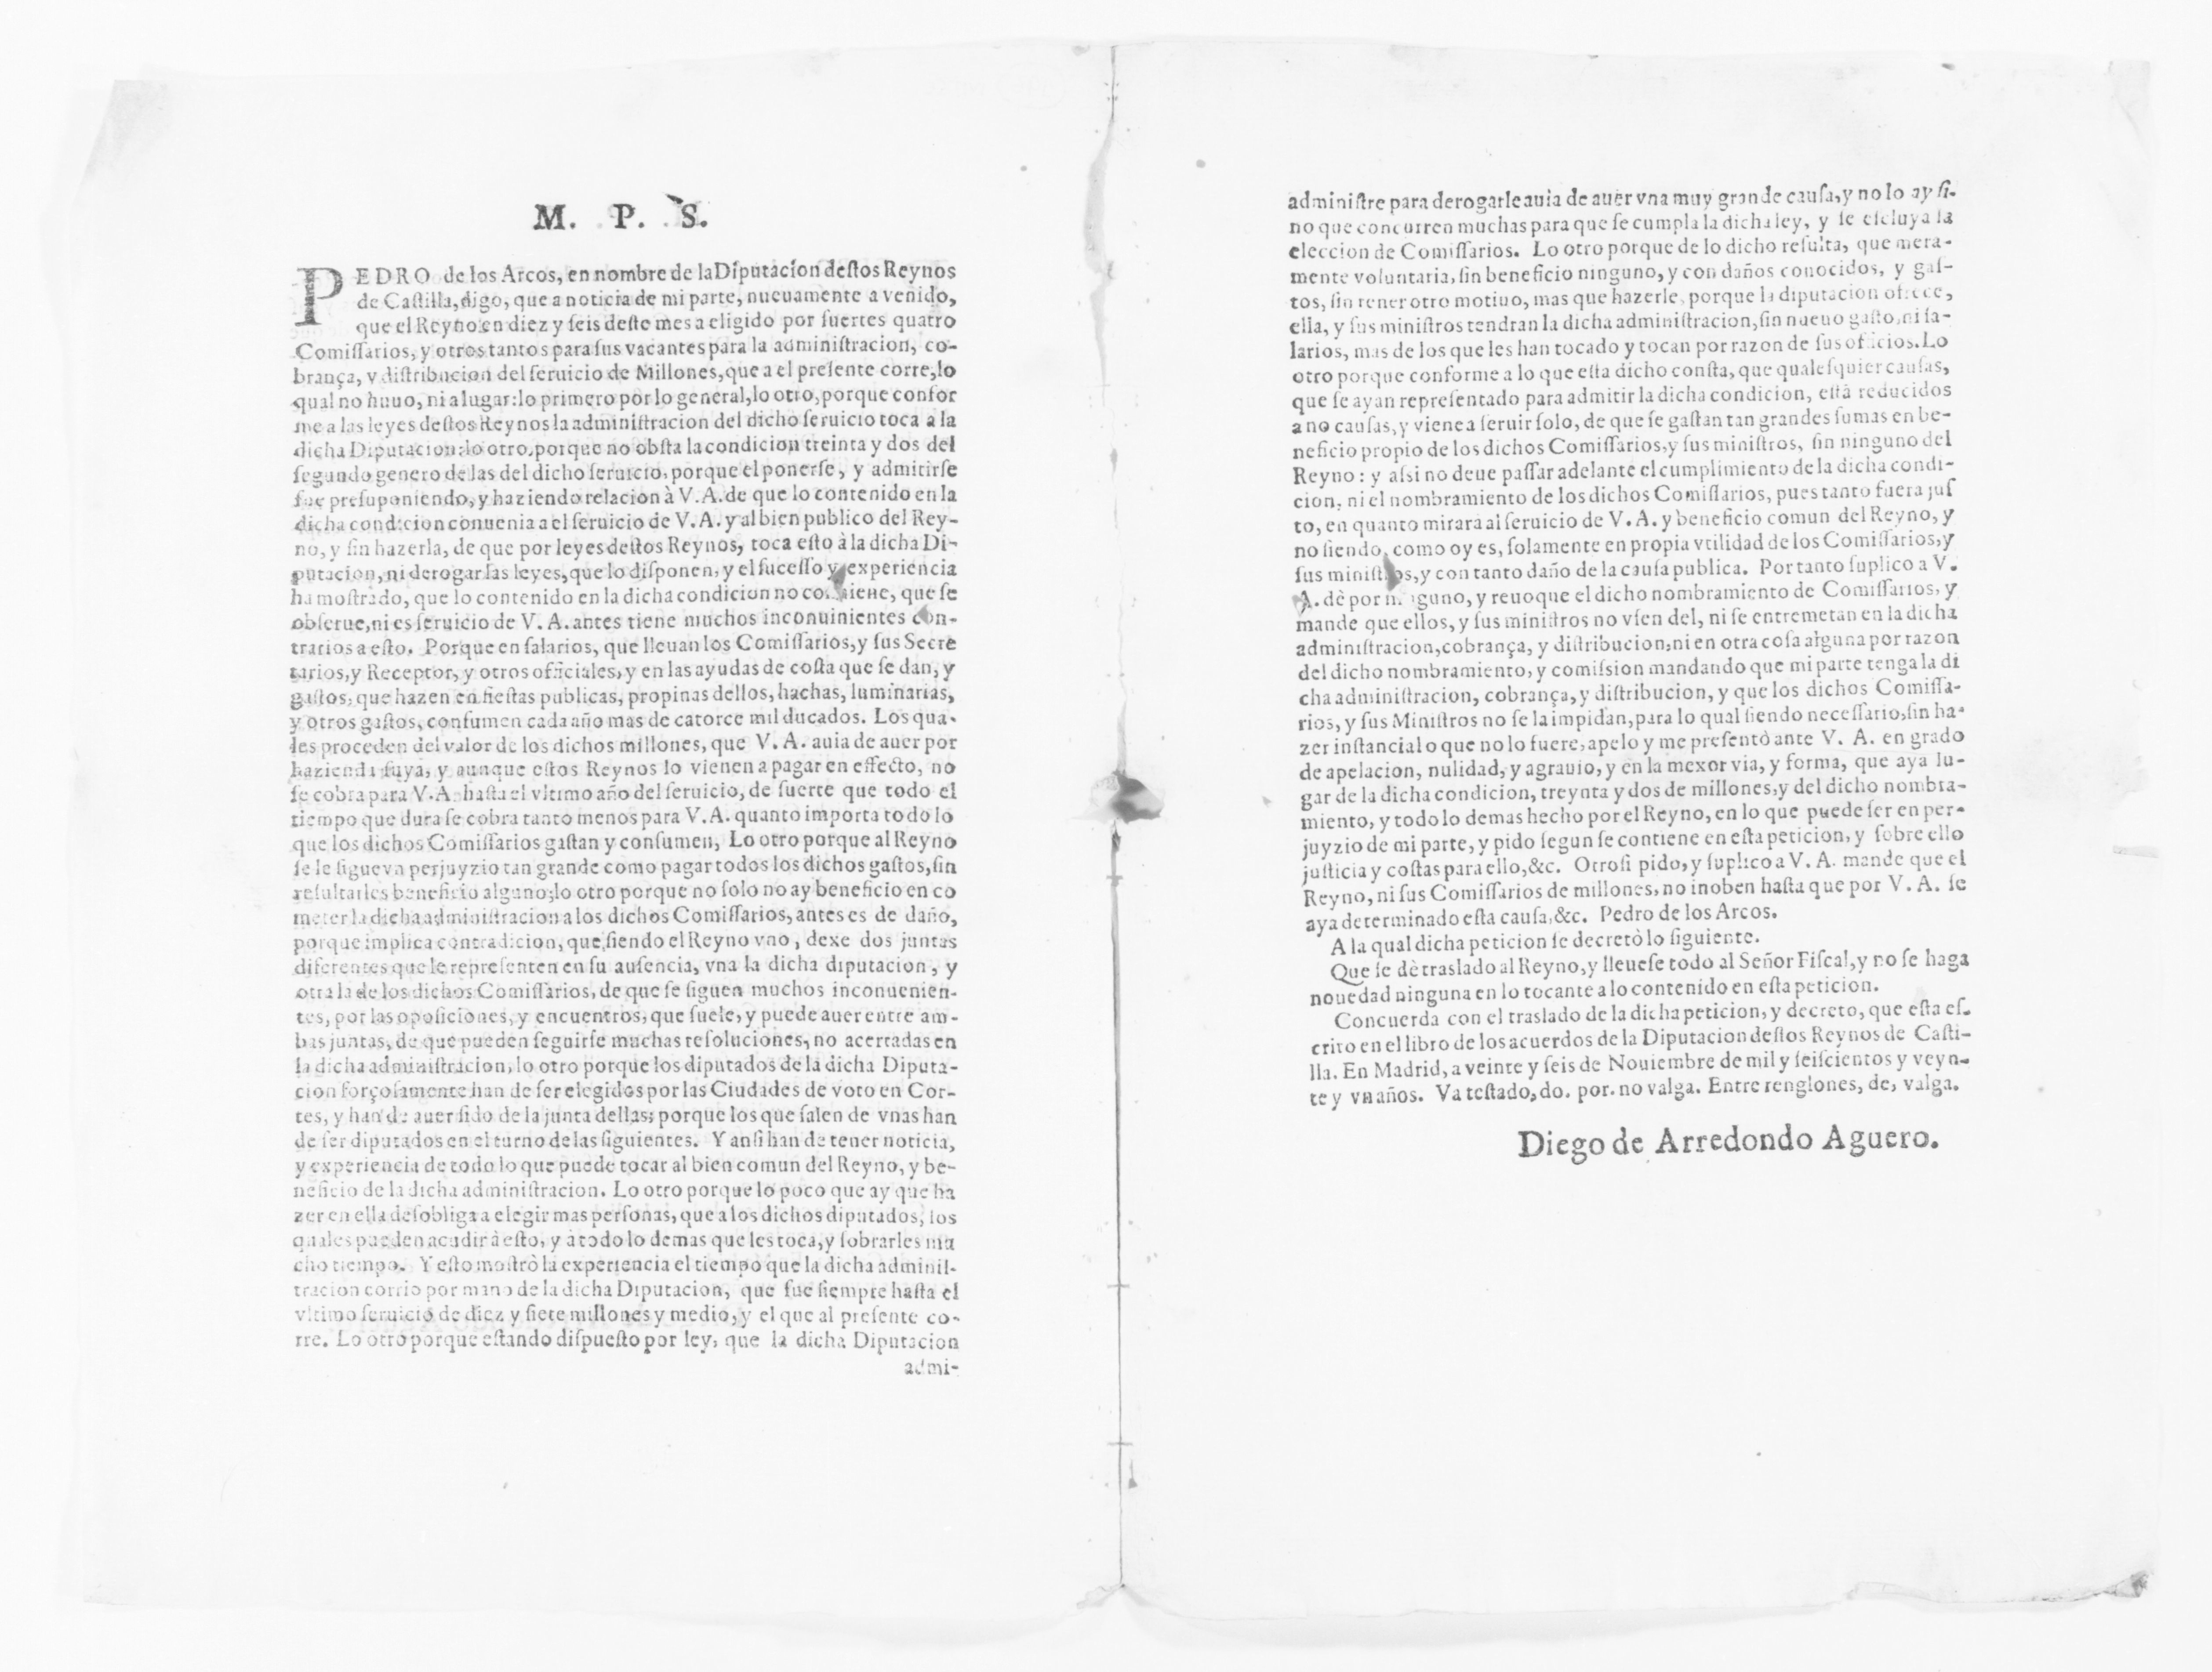 M. P. S.
PEDRO de los Arcos, en nombre de la Diputacion destos Reynos
de Castilla, digo, que a noticia de mi parte, nueuamente a venido,
que el Reyno en diez y seis deste mes a eligido por suertes quatro
Comissarios, y otros tantos para sus vacantes para la administracion, co-
brança, y distribucion del seruicio de Millones, que a el presente corre, lo
qual no huuo, ni a lugar: lo primero por lo general, lo otro, porque confor
me a las leyes destos Reynos la administracion del dicho seruicio toca a la
dicha Diputacion: lo otro, porque no obsta la condicion treinta y dos del
segundo genero de las del dicho seruicio, porque el ponerse, y admitirse
fue presuponiendo, y haziendo relacion à V. A. de que lo contenido en la
dicha condicion conuenia a el seruicio de V. A. y al bien publico del Rey-
no, y sin hazerla, de que por leyes destos Reynos, toca esto à la dicha Di-
putacion, ni derogar las leyes, que lo disponen, y el sucesso y experiencia
ha mostrado, que lo contenido en la dicha condicion no conuiene, que se
obserue, ni es seruicio de V. A. antes tiene muchos inconuinientes con-
trarios a esto. Porque en salarios, que lleuan los Comissarios, y sus Secre
tarios, y Receptor, y otros oficiales, y en las ayudas de costa que se dan, y
gastos, que hazen en fiestas publicas, propinas dellos, hachas, luminarias,
y otros gastos, consumen cada año mas de catorce mil ducados. Los qua-
les proceden del valor de los dichos millones, que V. A. auia de auer por
hazienda suya, y aunque estos Reynos lo vienen a pagar en effecto, no
se cobra para V. A. hasta el vltimo año del seruicio, de suerte que todo el
tiempo que dura se cobra tanto menos para V. A. quanto importa todo lo
que los dichos Comissarios gastan y consumen, Lo otro porque al Reyno
se le sigue vn perjuyzio tan grande como pagar todos los dichos gastos, sin
resultarles beneficio alguno; lo otro porque no solo no ay beneficio en co
meter la dicha administracion a los dichos Comissarios, antes es de daño,
porque implica contradicion, que siendo el Reyno vno, dexe dos juntas
diferentes que le representen en su ausencia, vna la dicha diputacion, y
otra la de los dichos Comissarios, de que se siguen muchos inconuenien-
tes, por las oposiciones, y encuentros, que suele, y puede auer entre am-
bas juntas, de que pueden seguirse muchas resoluciones, no acertadas en
la dicha administracion, lo otro porque los diputados de la dicha Diputa-
cion forçosamente han de ser elegidos por las Ciudades de voto en Cor-
tes, y han de auer sido de la junta dellas; porque los que salen de vnas han
de ser diputados en el turno de las siguientes. Y ansi han de tener noticia,
y experiencia de todo lo que puede tocar al bien comun del Reyno, y be-
neficio de la dicha administracion. Lo otro porque lo poco que ay que ha
zer en ella desobliga a elegir mas personas, que a los dichos diputados, los
quales pueden acudir à esto, y à todo lo demas que les toca, y sobrarles mu
cho tiempo. Y esto mostrò la experiencia el tiempo que la dicha adminis-
tracion corrio por mano de la dicha Diputacion, que fue siempre hasta el
vltimo seruicio de diez y siete millones y medio, y el que al presente co-
rre. Lo otro porque estando dispuesto por ley, que la dicha Diputacion
admi-
administre para derogarle auia de auer vna muy grande causa, y no lo ay si-
no que concurren muchas para que se cumpla la dicha ley, y se escluya la
eleccion de Comissarios. Lo otro porque de lo dicho resulta, que mera-
mente voluntaria, sin beneficio ninguno, y con daños conocidos, y gas-
tos, sin tener otro motiuo, mas que hazerle, porque la diputacion ofrece,
ella, y sus ministros tendran la dicha administracion, sin nueuo gasto, ni sa-
larios, mas de los que les han tocado y tocan por razon de sus oficios. Lo
otro porque conforme a lo que esta dicho consta, que qualesquier causas,
que se ayan representado para admitir la dicha condicion, està reducidos
a no causas, y viene a seruir solo, de que se gastan tan grandes sumas en be-
neficio propio de los dichos Comissarios, y sus ministros, sin ninguno del
Reyno: y assi no deue passar adelante el cumplimiento de la dicha condi-
cion, ni el nombramiento de los dichos Comissarios, pues tanto fuera jus
to, en quanto mirara al seruicio de V. A. y beneficio comun del Reyno, y
no siendo, como oy es, solamente en propia vtilidad de los Comissarios, y
sus ministros, y con tanto daño de la causa publica. Por tanto suplico a V.
A. dè por ninguno, y reuoque el dicho nombramiento de Comissarios, y
mande que ellos, y sus ministros no vsen del, ni se entremetan en la dicha
administracion, cobrança, y distribucion, ni en otra cosa alguna por razon
del dicho nombramiento, y comission mandando que mi parte tenga la di
cha administracion, cobrança, y distribucion, y que los dichos Comissa-
rios, y sus Ministros no se la impidan, para lo qual siendo necessario, sin ha-
zer instancia lo que no lo fuere, apelo y me presentò ante V. A. en grado
de apelacion, nulidad, y agrauio, y en la mexor via, y forma, que aya lu-
gar de la dicha condicion, treynta y dos de millones, y del dicho nombra-
miento, y todo lo demas hecho por el Reyno, en lo que puede ser en per-
juyzio de mi parte, y pido segun se contiene en esta peticion, y sobre ello
justicia y costas para ello, &c. Otrosi pido, y suplico a V. A. mande que el
Reyno, ni sus Comissarios de millones, no inoben hasta que por V. A. se
aya determinado esta causa, &c. Pedro de los Arcos.
A la qual dicha peticion se decretò lo siguiente.
Que se dè traslado al Reyno, y lleuese todo al Señor Fiscal, y no se haga
nouedad ninguna en lo tocante a lo contenido en esta peticion.
Concuerda con el traslado de la dicha peticion, y decreto, que esta es-
crito en el libro de los acuerdos de la Diputacion destos Reynos de Casti-
lla. En Madrid, a veinte y seis de Nouiembre de mil y seiscientos y veyn-
te y vn años. Va testado, do. por. no valga. Entre renglones, de, valga.
Diego de Arredondo Aguero.